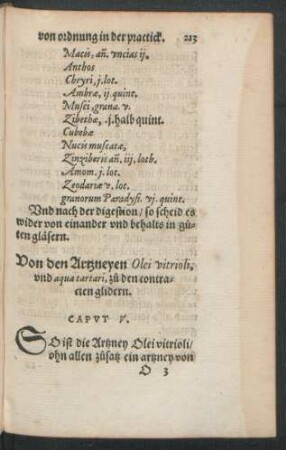 von ordnung in der practick. 213
Macis, añ. vncias ij.
Anthos
Cheyri, j. lot.
Ambræ, ij. quint.
Musci, grana. v.
Zibethæ, .j. halb quint.
Cubebæ
Nucis muscatæ,
Zinziberis añ. iij. loth.
Amom. j. lot.
Zeodariæ v. lot.
granorum Paradysi. vj. quint.
Vnd nach der digestion / so scheid es
wider von einander vnd behalts in gů-
ten gläsern.
Von den Artzneyen Olei vitrioli,
vnd aqua tartari, zů den contra-
cten glidern.
CAPVT V.
SO ist die Artzney Olei vitrioli /
ohn allen zůsatz ein artzney von
O 3